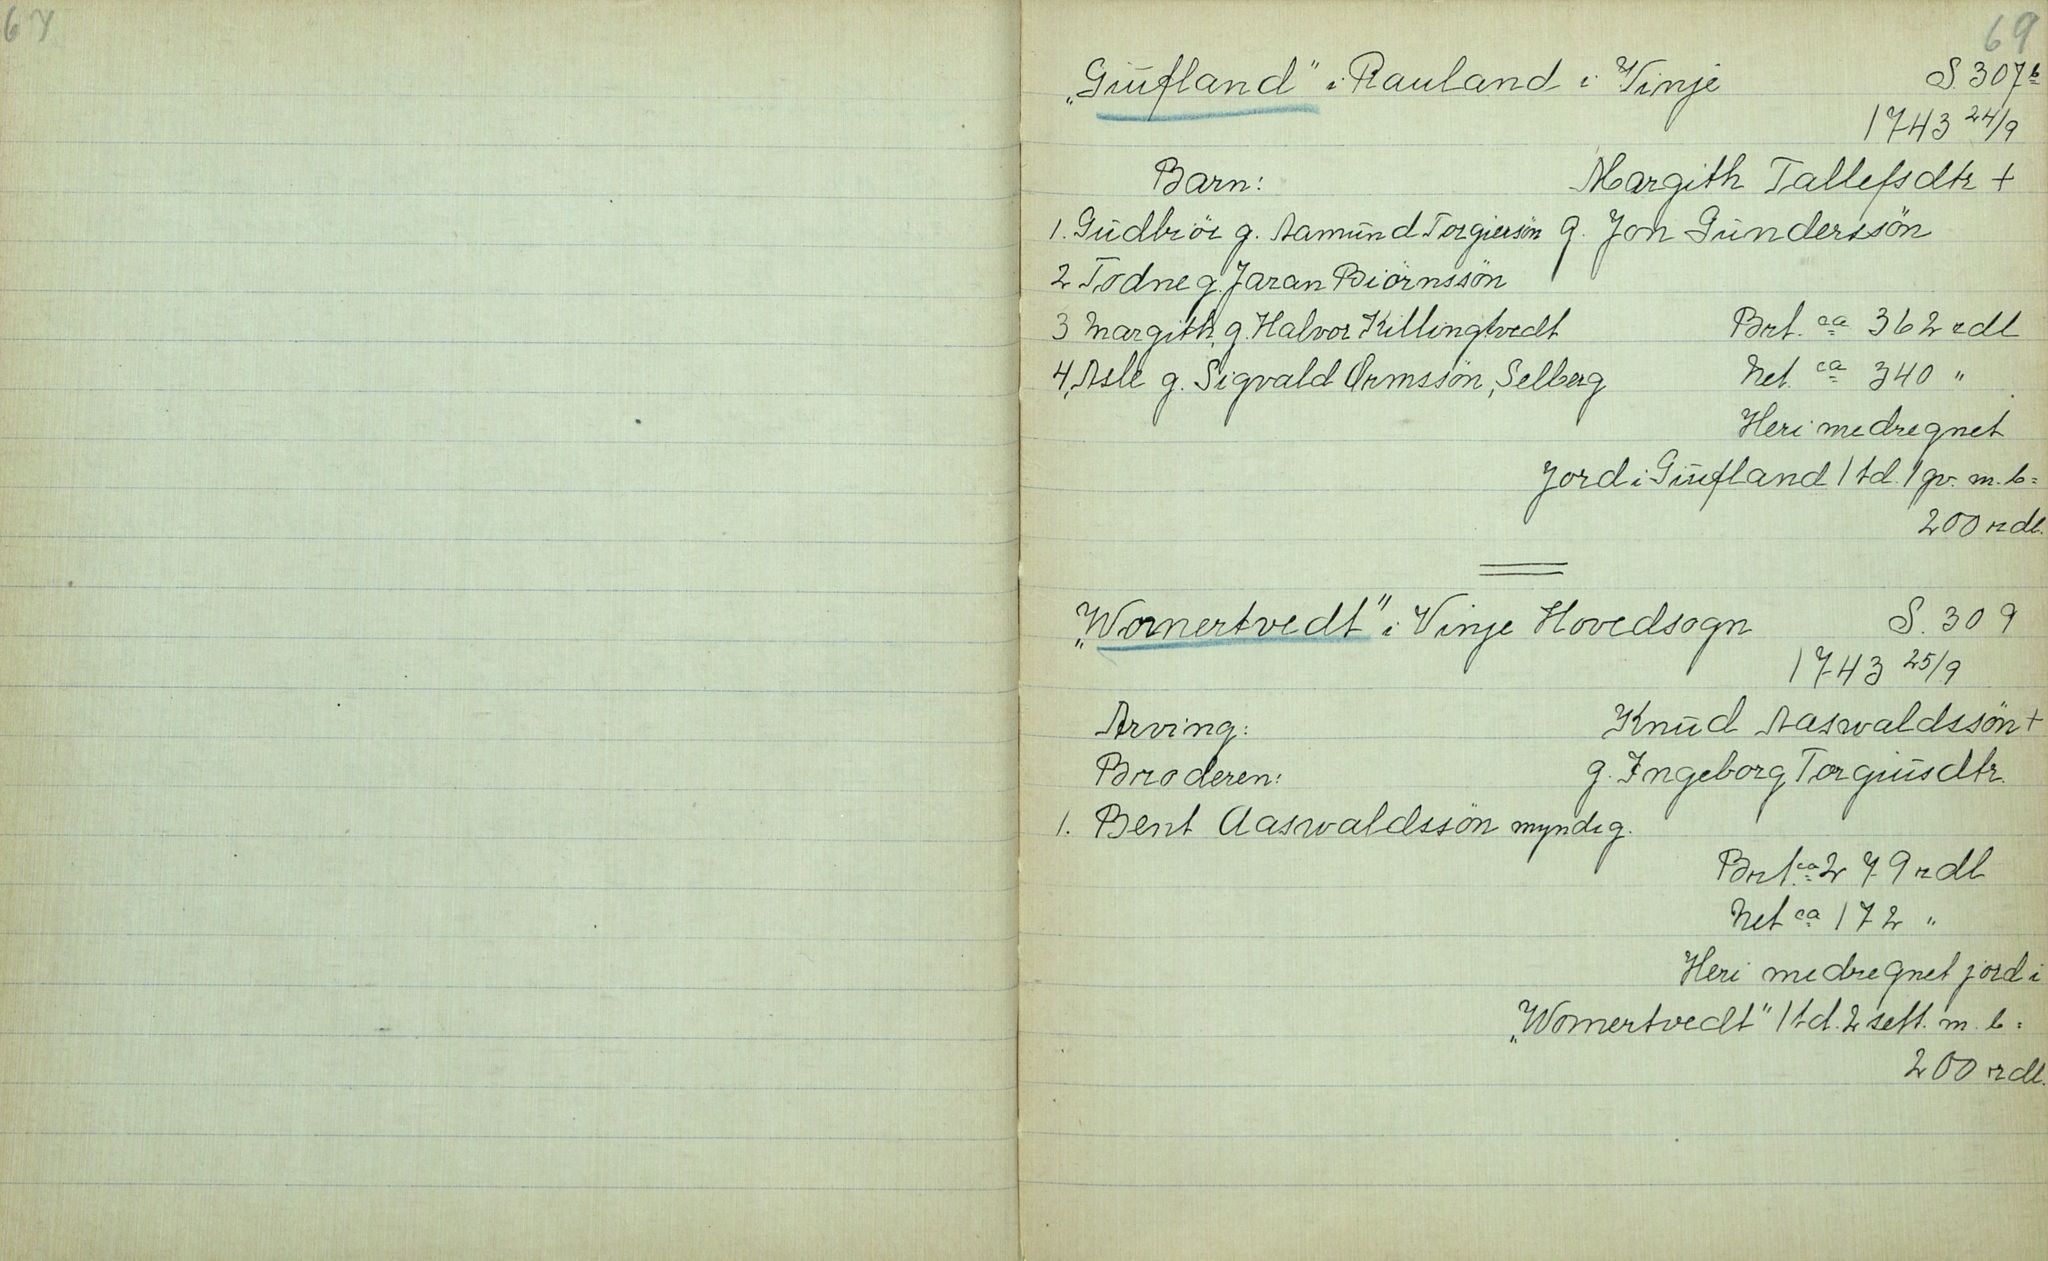 67
69
„Giufland" i Rauland i Vinje S. 307b
1743 24/9
Barn: Margith Tallefsdtr +
1. Gudbiör g. Aamund Torgiersön g. Jon Gunderssön
2 Todne g. Jaran Biörnssön
3 Margith, g. Halvor Killingtvedt Brt. ca 362 rdl
4, Asle g. Sigvald Ormssön, Selberg Net. ca 340 "
Heri medregnet
Jord i Giufland 1 td. 1 gv. m. b =
200 rdl.
„Womertvedt" i Vinje Hovedsogn S. 309
1743 25/9
Arving: Knud Aaswaldssön +
Broderen: g. Ingeborg Torgiusdtr.
1. Bent Aaswaldssön myndig.
Brt. ca 279 rdl
Net ca 172 "
Heri medregnet jord i
„Womertvedt" 1 td. 2 sett. m. b =
200 rdl.